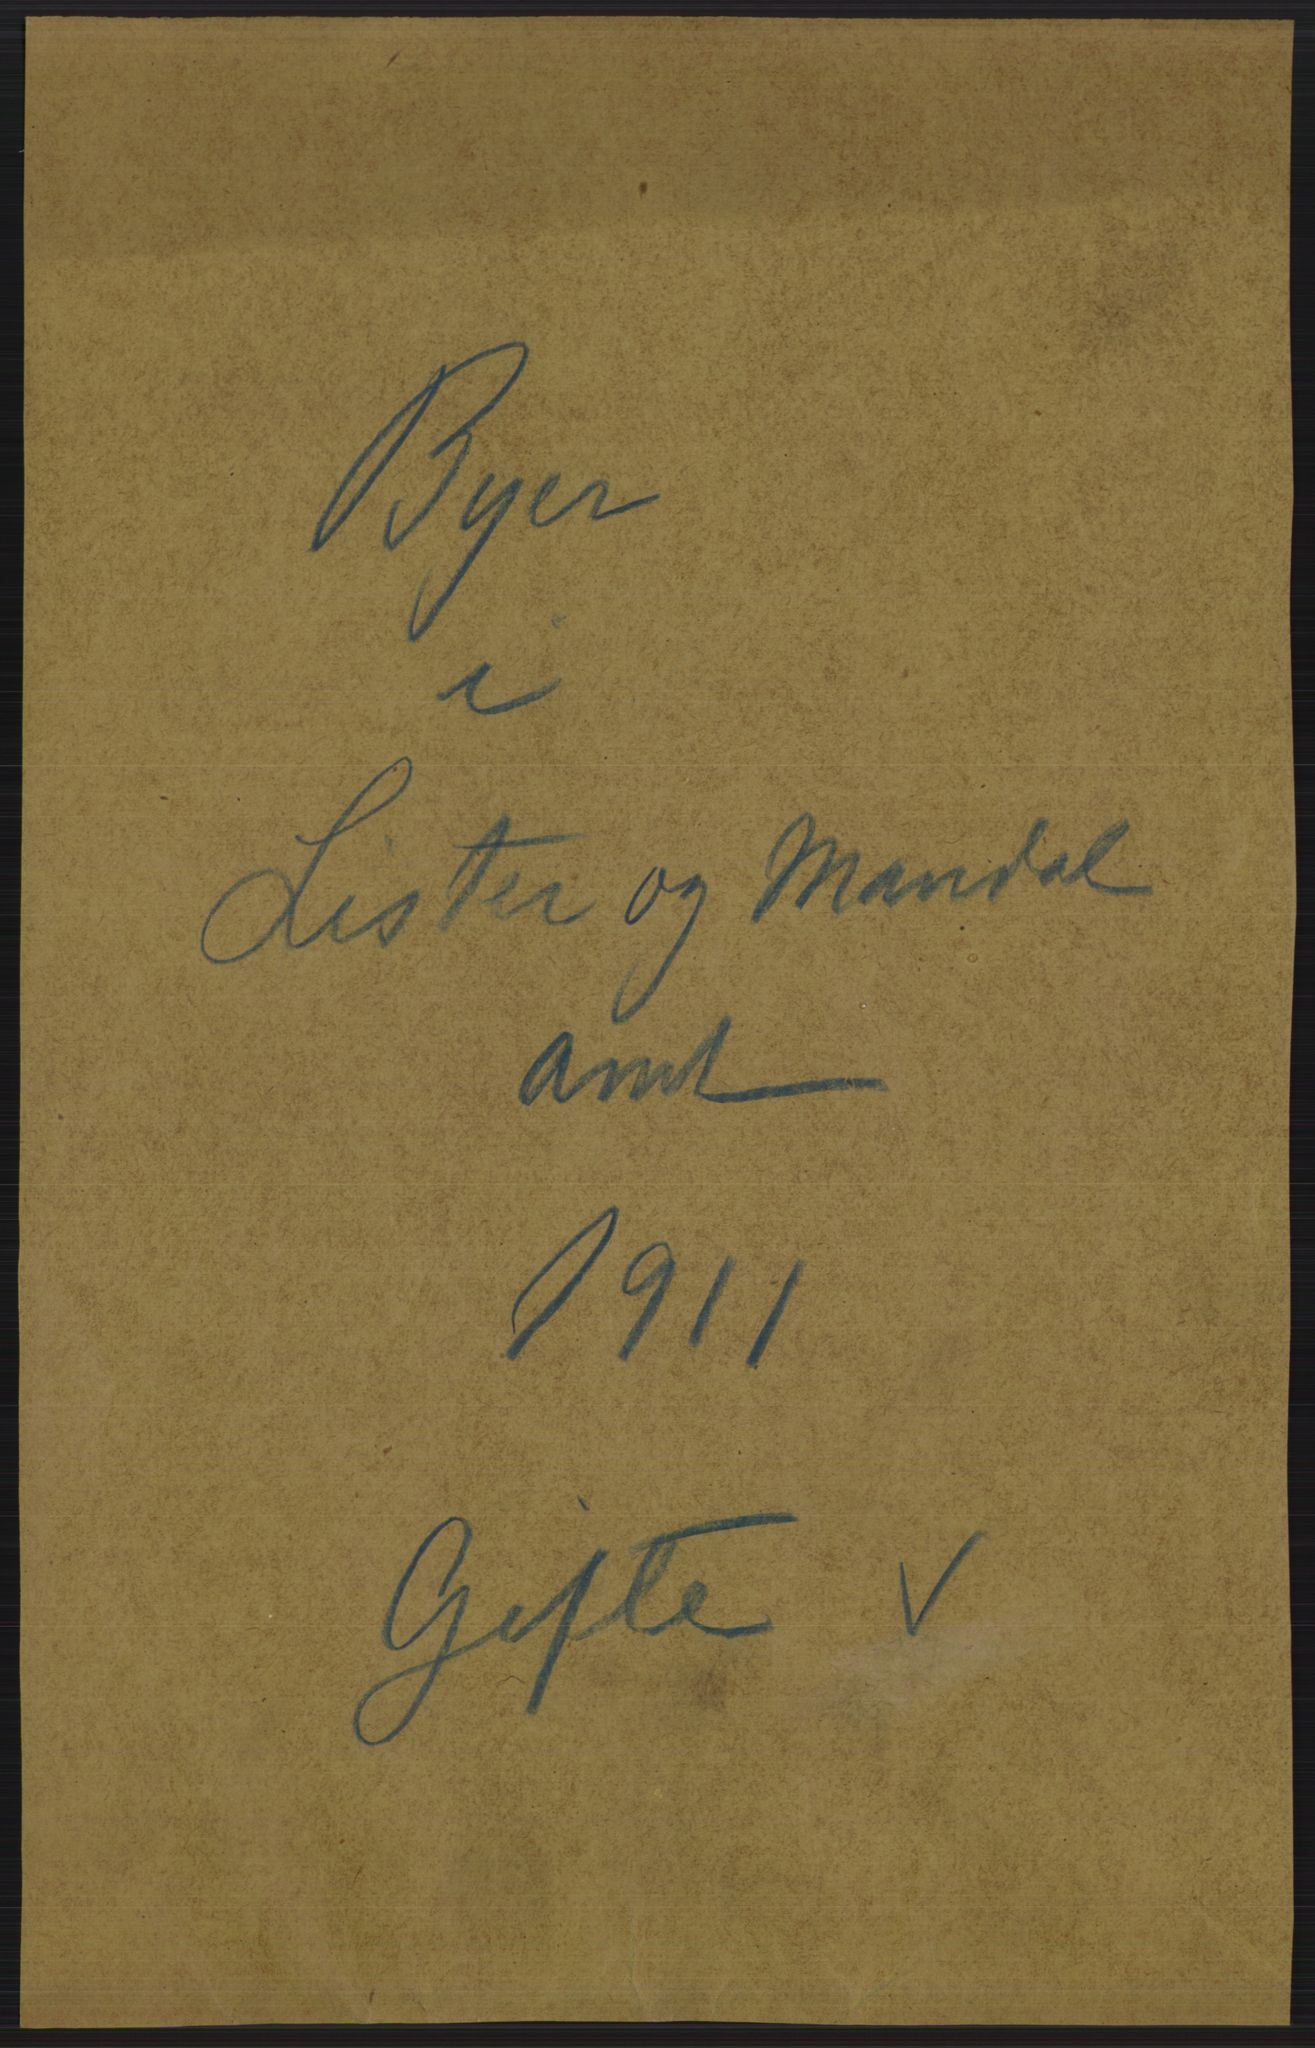 Byer
i
Lister og Mandal
amt
1911
Gifte V